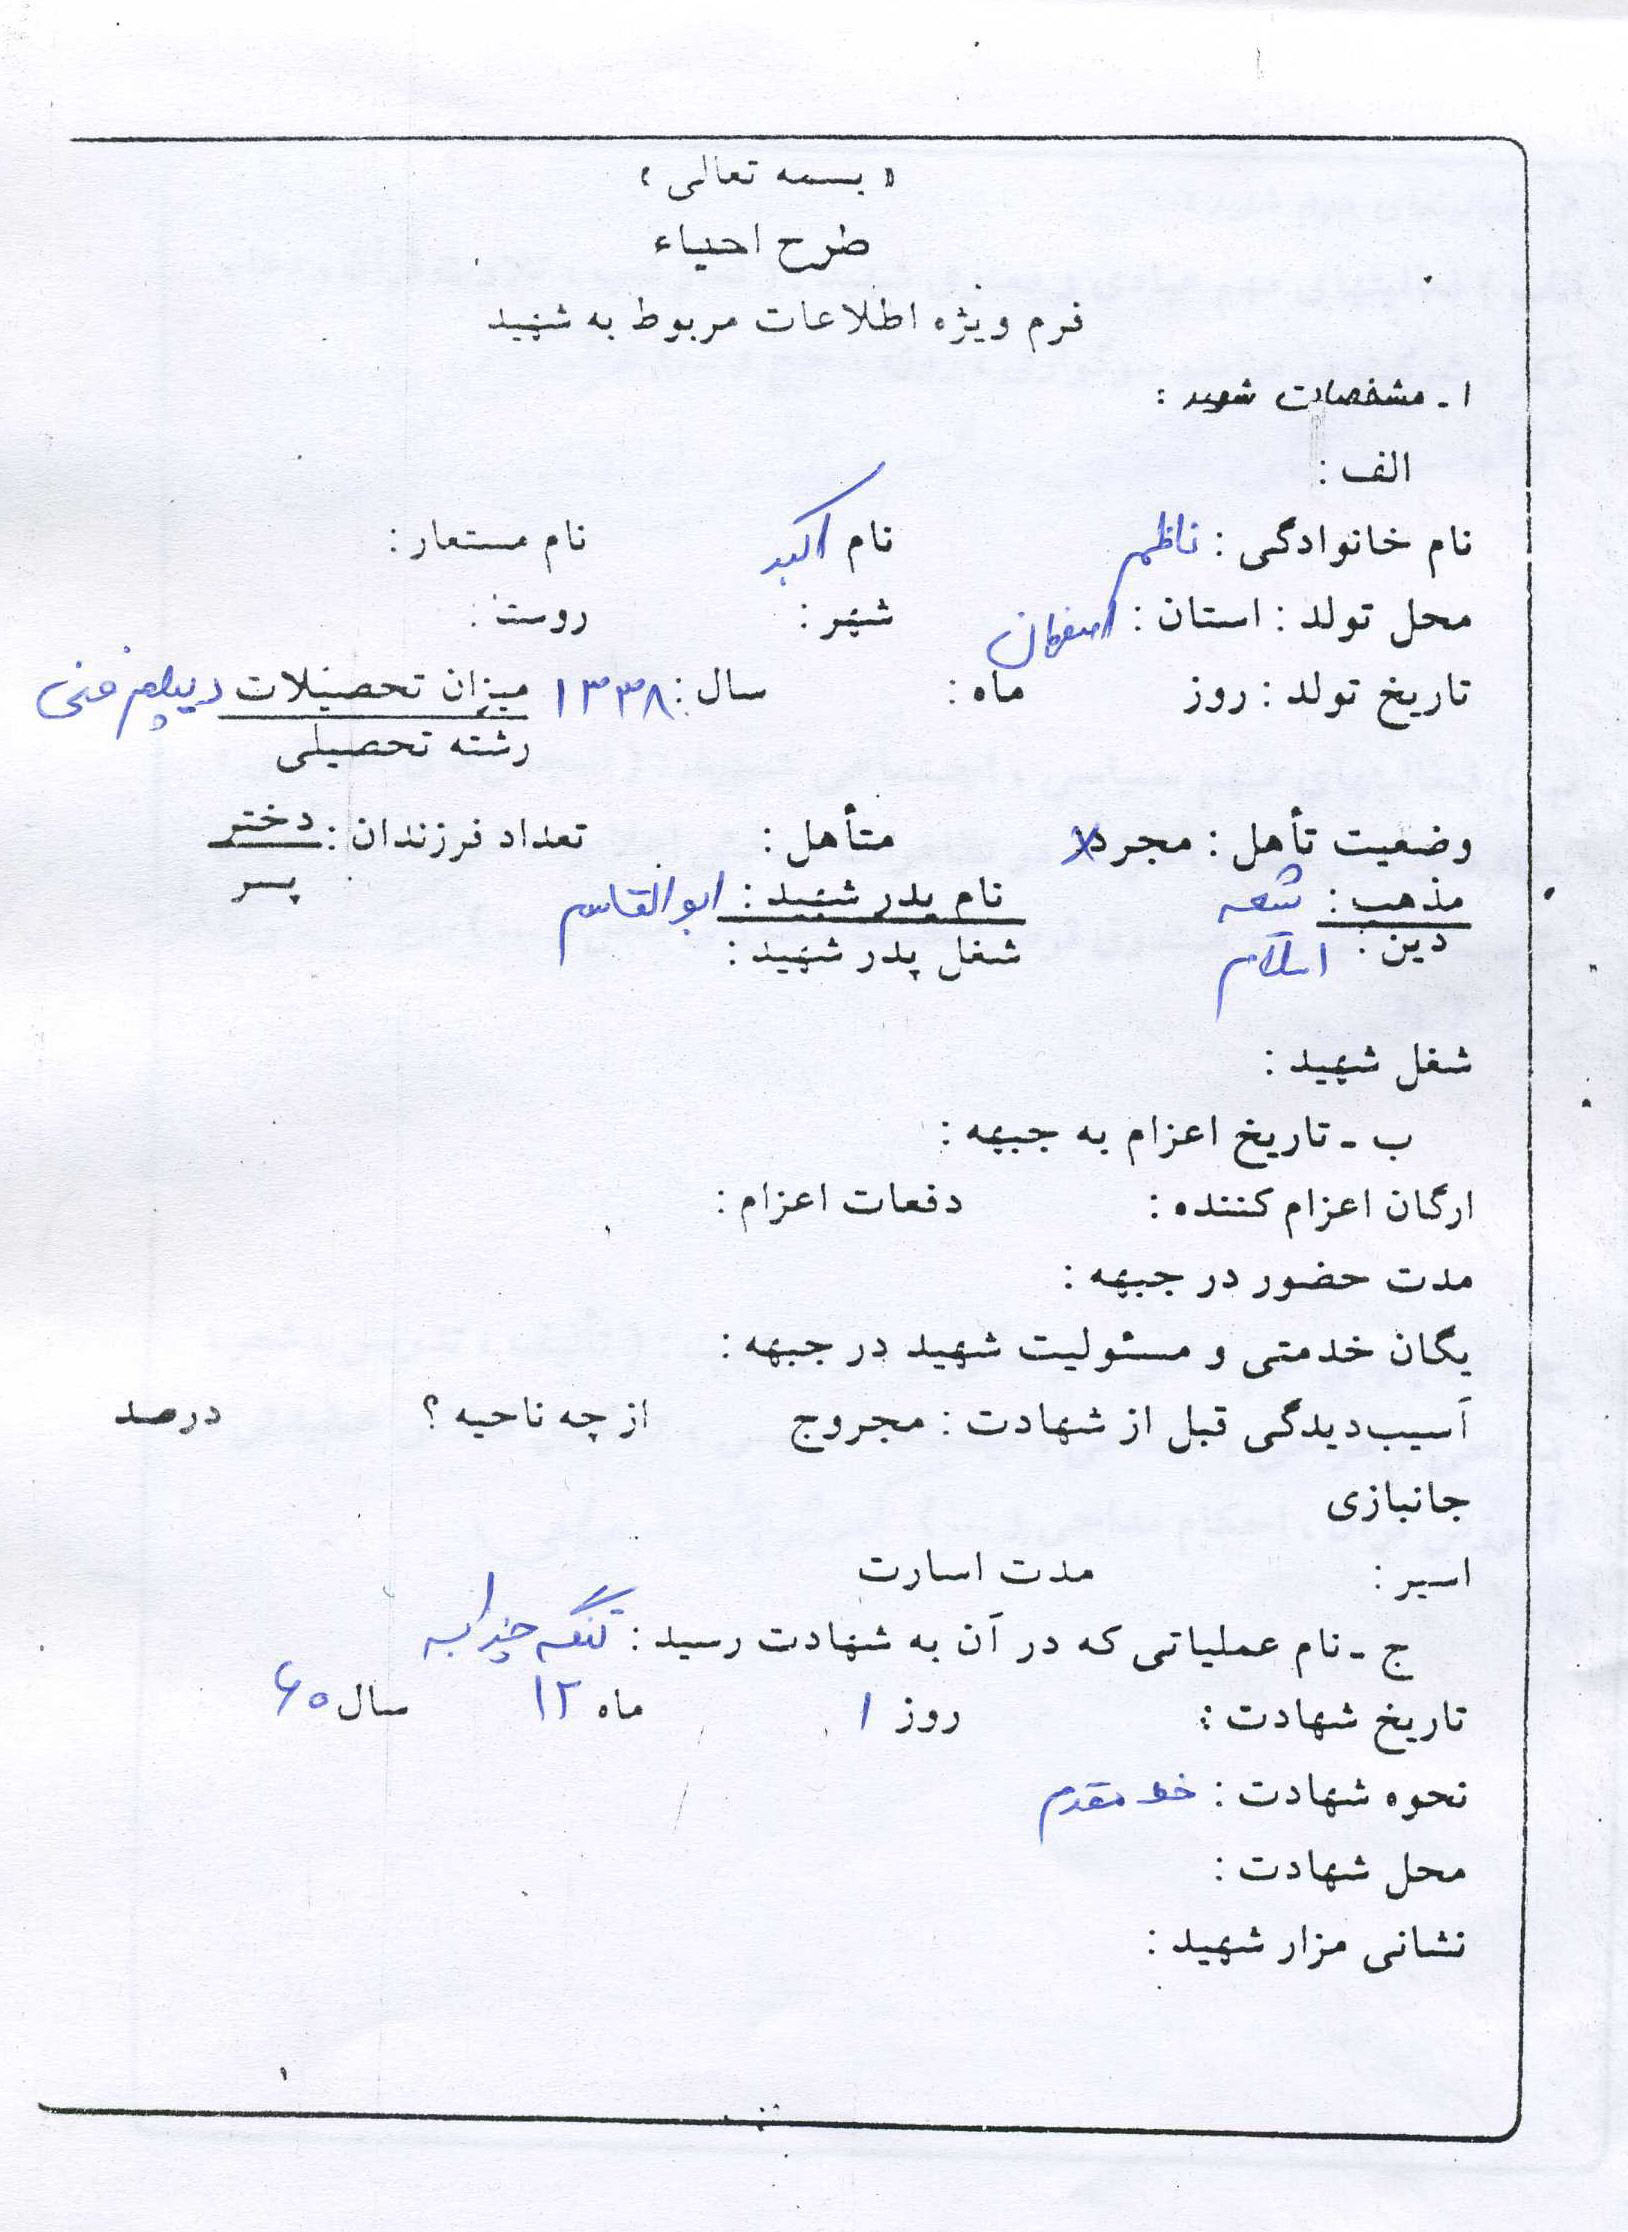 « بسمه تعالی »
طرح احیاء
فرم ویژه اطلاعات مربوط به شهید
۱ - مشخصات شهید :
الف :
نام خانوادگی : ناظم نام اکبر نام مستعار :
محل تولد : استان : اصفهان شهر : روستا :
تاریخ تولد : روز ماه : سال : ۱۳۳۸ میزان تحصیلات دیپلم فنی
رشته تحصیلی
وضعیت تأهل : مجرد x متأهل : تعداد فرزندان : دختر
پسر
مذهب : شیعه نام پدر شهید : ابوالقاسم
دین : اسلام شغل پدر شهید :
شغل شهید :
ب - تاریخ اعزام به جبهه :
ارگان اعزام کننده : دفعات اعزام :
مدت حضور در جبهه :
یگان خدمتی و مسئولیت شهید در جبهه :
آسیب‌دیدگی قبل از شهادت : مجروح از چه ناحیه ؟ درصد
جانبازی
اسیر : مدت اسارت
ج - نام عملیاتی که در آن به شهادت رسید : تنگه چزابه
تاریخ شهادت : روز ۱ ماه ۱۲ سال ۶۰
نحوه شهادت : خط مقدم
محل شهادت :
نشانی مزار شهید :
۱